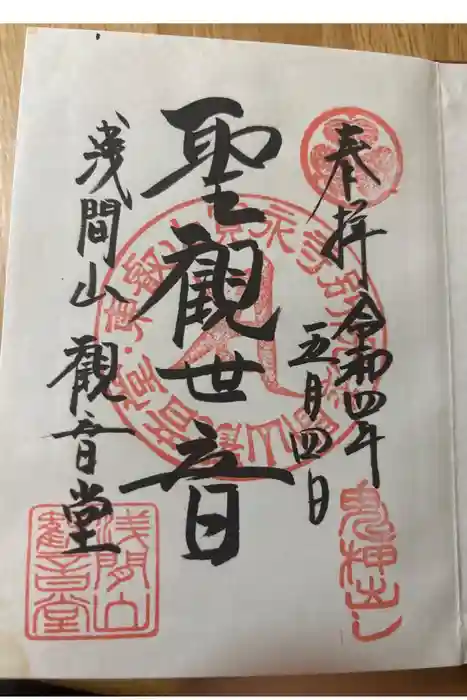 奉拝
令和四年
五月四日
聖観世音
浅間山観音堂
鬼押出し
浅間山
観音堂